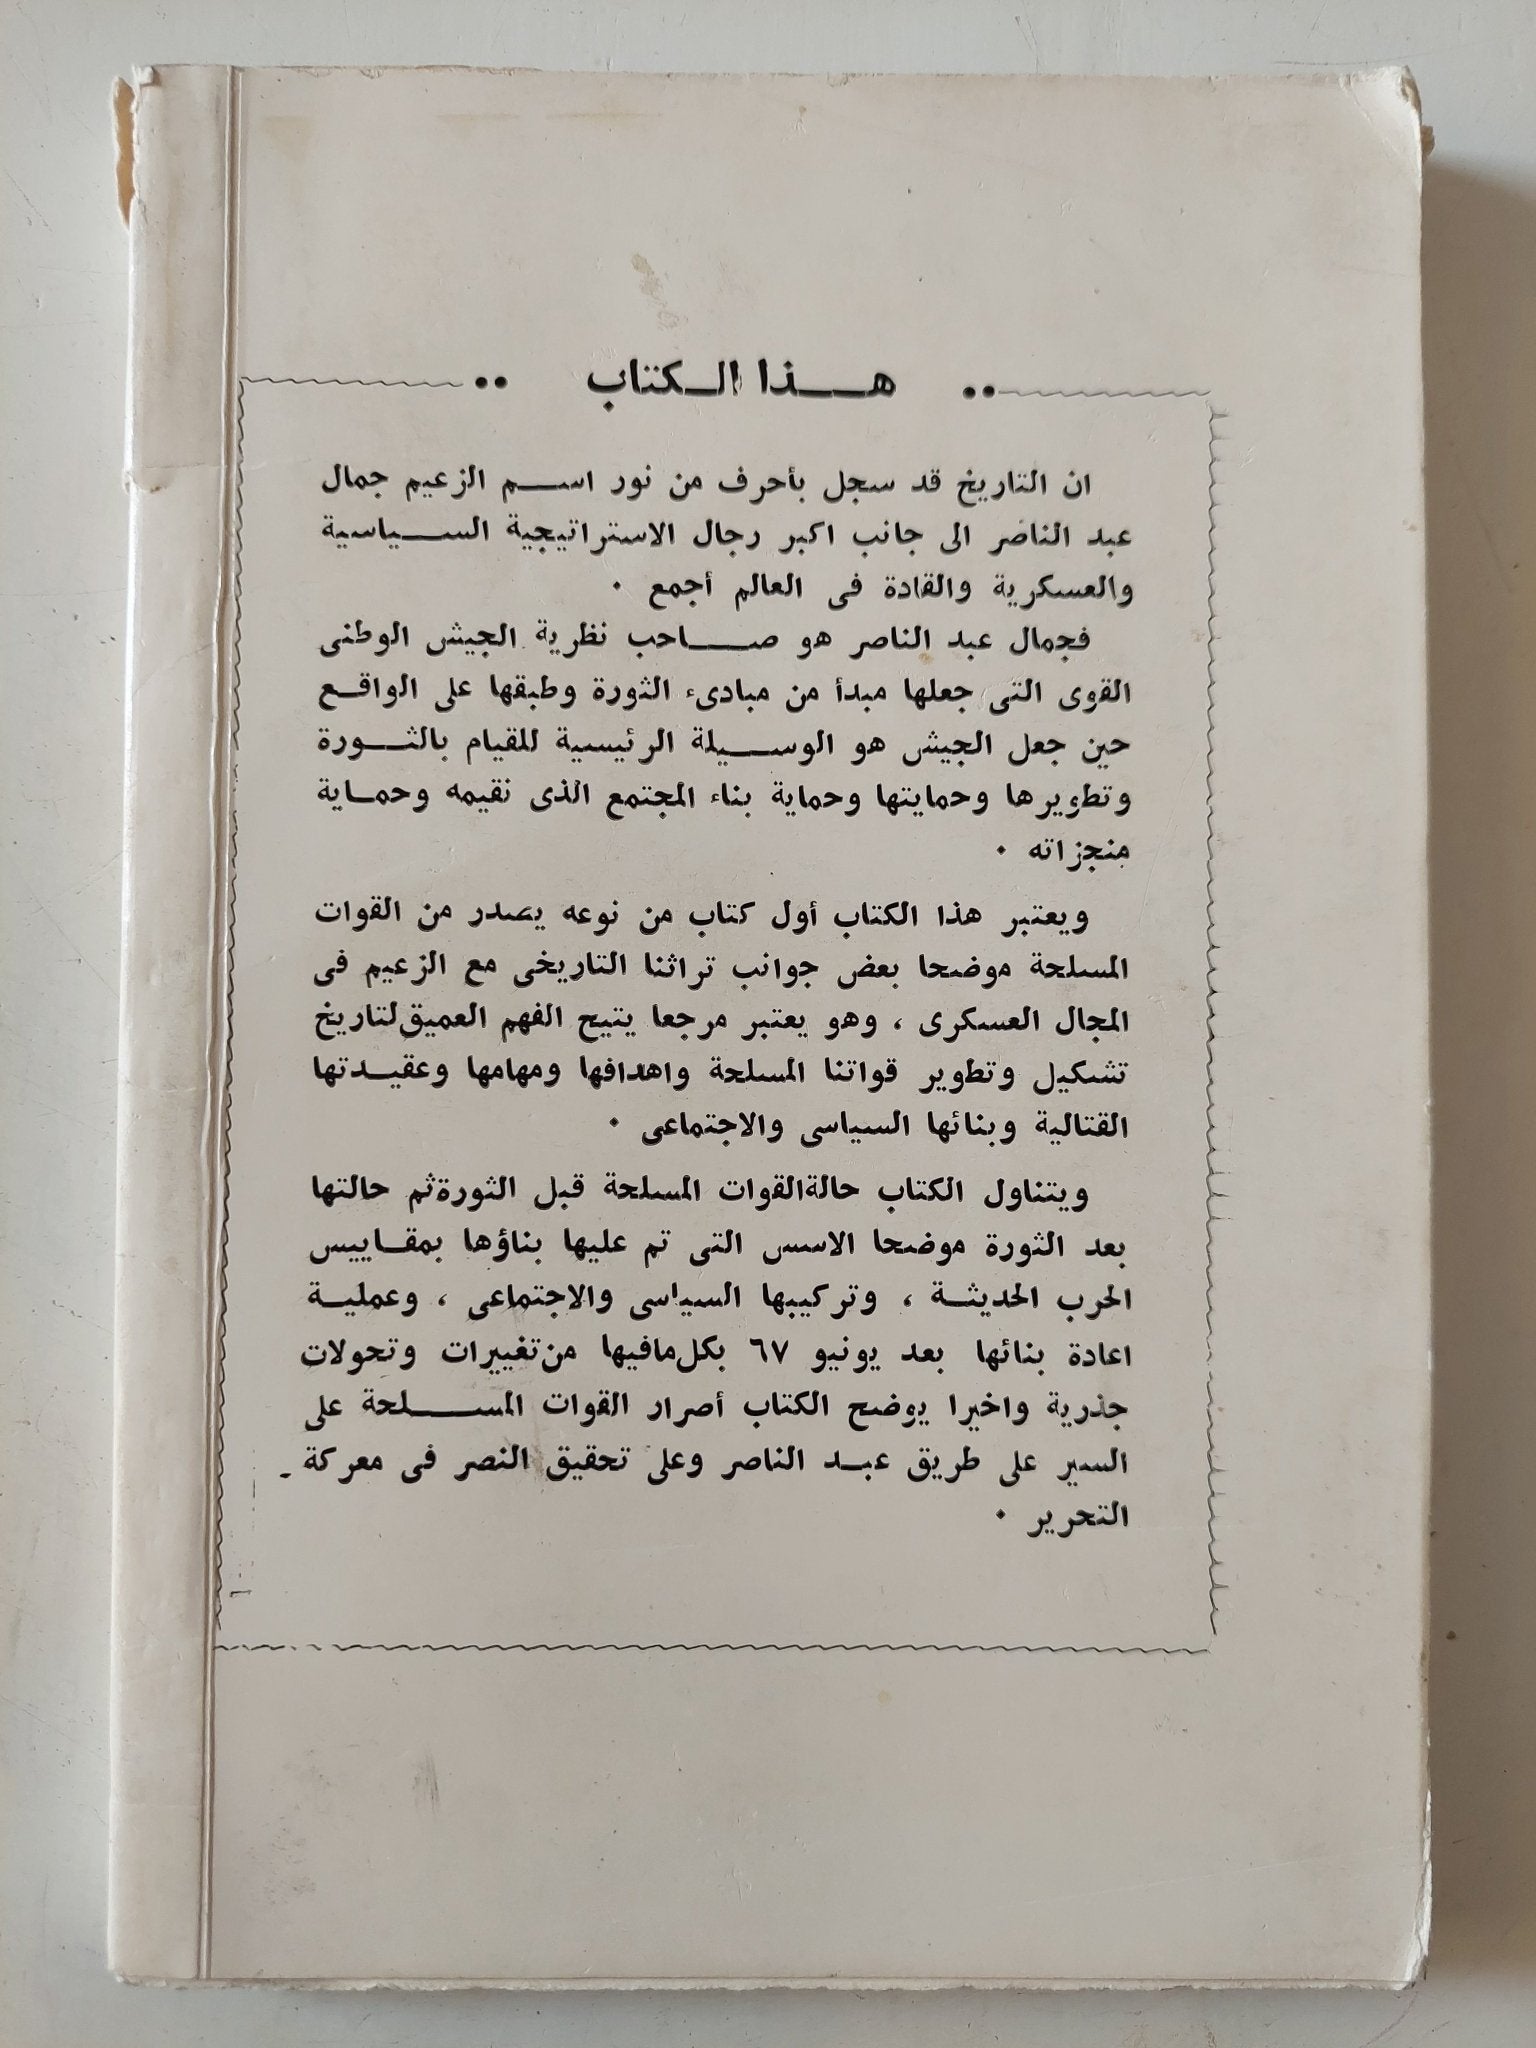 •• هــذا الـكتاب ••
ان التاريخ قد سجل بأحرف من نور اسم الزعيم جمال
عبد الناصر الى جانب اكبر رجال الاستراتيجية السياسية
والعسكرية والقادة فى العالم أجمع ٠
فجمال عبد الناصر هو صاحب نظرية الجيش الوطنى
القوى التى جعلها مبدأ من مبادىء الثورة وطبقها على الواقع
حين جعل الجيش هو الوسيلة الرئيسية للقيام بالثورة
وتطويرها وحمايتها وحماية بناء المجتمع الذى نقيمه وحماية
منجزاته ٠
ويعتبر هذا الكتاب أول كتاب من نوعه يصدر من القوات
المسلحة موضحا بعض جوانب تراثنا التاريخى مع الزعيم فى
المجال العسكرى ، وهو يعتبر مرجعا يتيح الفهم العميق لتاريخ
تشكيل وتطوير قواتنا المسلحة واهدافها ومهامها وعقيدتها
القتالية وبنائها السياسى والاجتماعى ٠
ويتناول الكتاب حالة القوات المسلحة قبل الثورة ثم حالتها
بعد الثورة موضحا الاسس التى تم عليها بناؤها بمقاييس
الحرب الحديثة ، وتركيبها السياسى والاجتماعى ، وعملية
اعادة بنائها بعد يونيو ٦٧ بكل مافيها من تغييرات وتحولات
جذرية واخيرا يوضح الكتاب أصرار القوات المسلحة على
السير على طريق عبد الناصر وعلى تحقيق النصر فى معركة
التحرير ٠